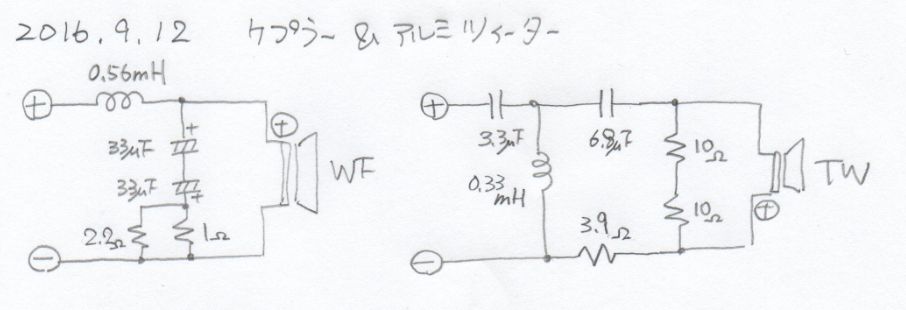 2016.9.12 ケプラー & アルミツィーター
0.56mH
⊕
33μF
+
33μF
+
2.2Ω
1Ω
⊖
⊕
WF
⊕
3.3μF
6.8μF
0.33
mH
3.9Ω
10Ω
10Ω
⊖
⊕
TW